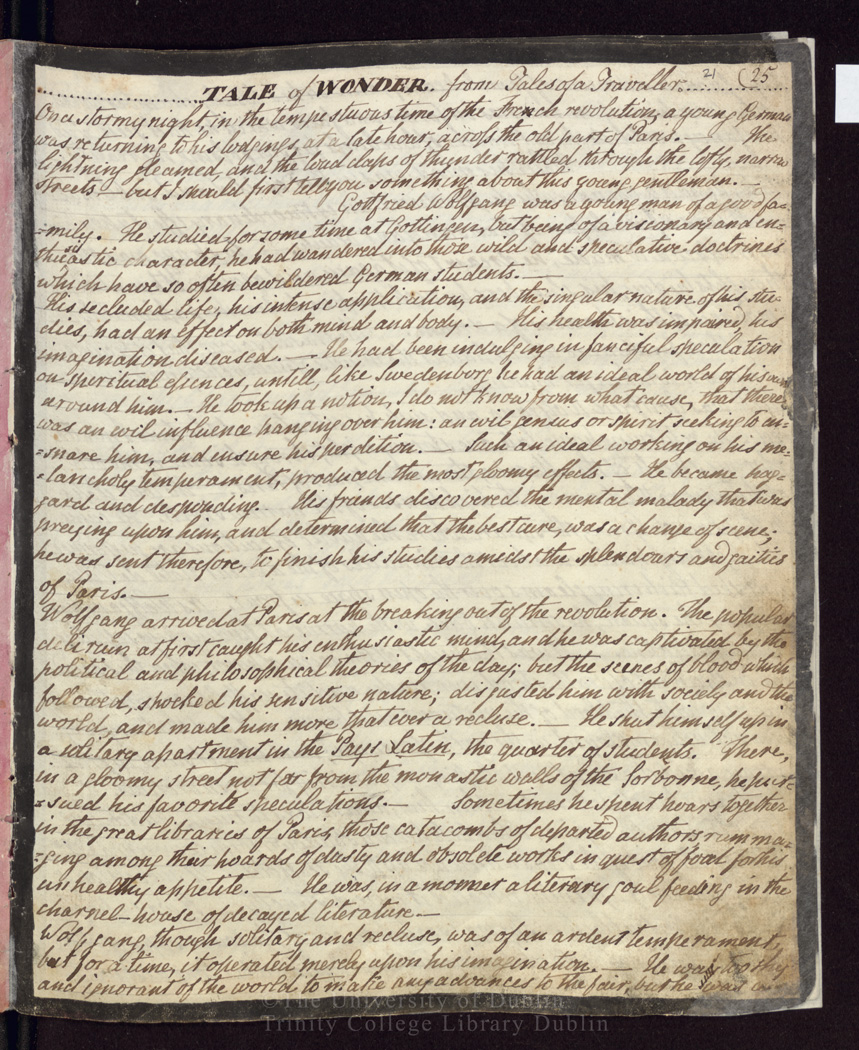 TALE of WONDER. from Tales of a Traveller. 21 (25
On a stormy night, in the tempestuous time of the French revolution, a young German
was returning to his lodgings, at a late hour, across the old part of Paris. — The
lightning gleamed, and the loud claps of thunder rattled through the lofty, narrow
streets — but I should first tell you something about this young gentleman. —
Gottfried Wolfgang was a young man of a good fa=
=mily. He studied for some time at Gottingen, but being of a visionary and en=
thusiastic character, he had wandered into those wild and speculative doctrines
which have so often bewildered German students. —
His secluded life, his intense application, and the singular nature of his stu=
dies, had an effect on both mind and body. — His health was impaired, his
imagination diseased. — He had been indulging in fanciful speculation
on speritual esences, untill, like Swedenborg he had an ideal world of his own
around him. — He took up a notion, I do not know from what cause, that there
was an evil influence hanging over him: an evil genius or spirit seeking to en=
=snare him, and ensure his perdition. — Such an ideal working on his me=
=lancholy temperament, produced the most gloomy effects. — He became hag=
gard and desponding. His frands discovered the mental malady that was
preying upon him, and determined that the best cure, was a change of scene;
he was sent therefore, to finish his studies amidst the splendours and gaities
of Paris. —
Wolfgang arrived at Paris at the breaking out of the revolution. The popular
delirium at first caught his enthusiastic mind, and he was captivated by the
political and philosophical theories of the day; but the scenes of blood which
followed, shocked his sensitive nature; disgusted him with society and the
world, and made him more that ever a recluse. — He shut himself up in
a solitary apartment in the Pays Latin, the quarter of students. There,
in a gloomy street not far from the monastic walls of the Sorbonne, he pur=
=sued his favorite speculations. — Sometimes he spent hours together
in the great libraries of Paris, those catacombs of departed authors rumma=
=ging among their hoards of dusty and obsolete works in quest of food for his
unhealthy appetite. — He was, in a manner a literary goul feeding in the
charnel-house of decayed literature. —
Wolfgang, though solitary and recluse, was of an ardent temperament,
but for a time, it operated merely upon his imagination. — He was too shy
and ignorant of the world to make any advances to the fair, but he was
©The University of Dublin
Trinity College Library Dublin